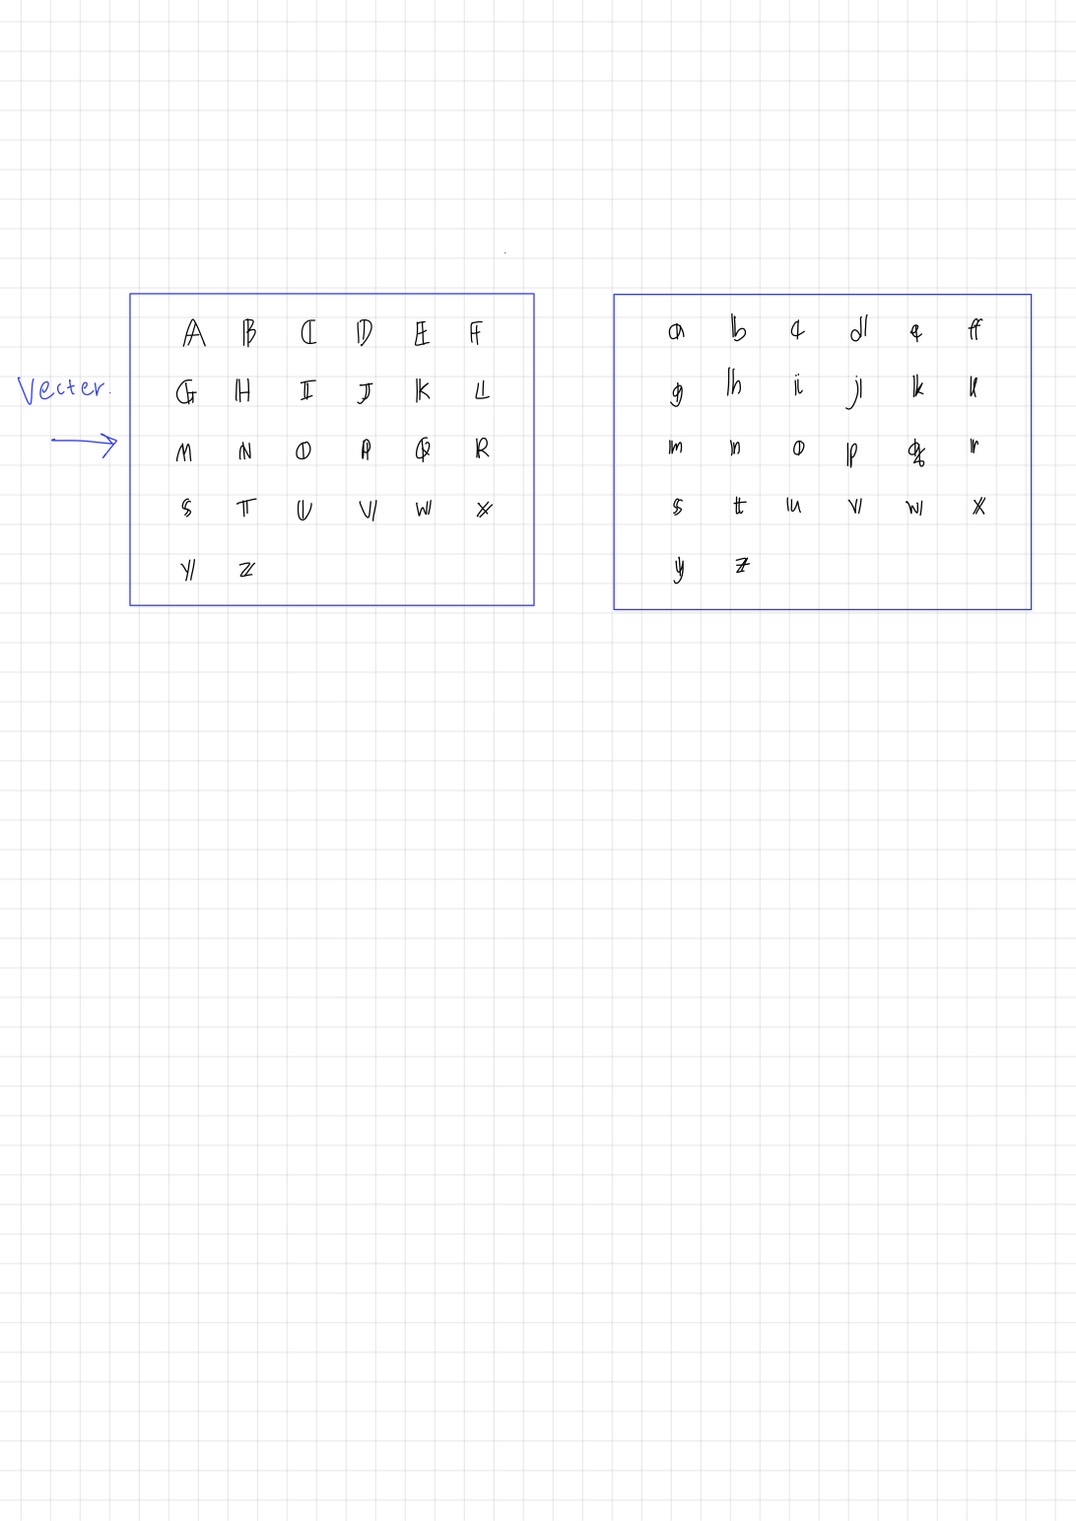 Vecter.
A B C D E F
G H I J K L
M N O P Q R
S T U V W X
Y Z
a b c d e f
g h i j k l
m n o p q r
s t u v w x
y z